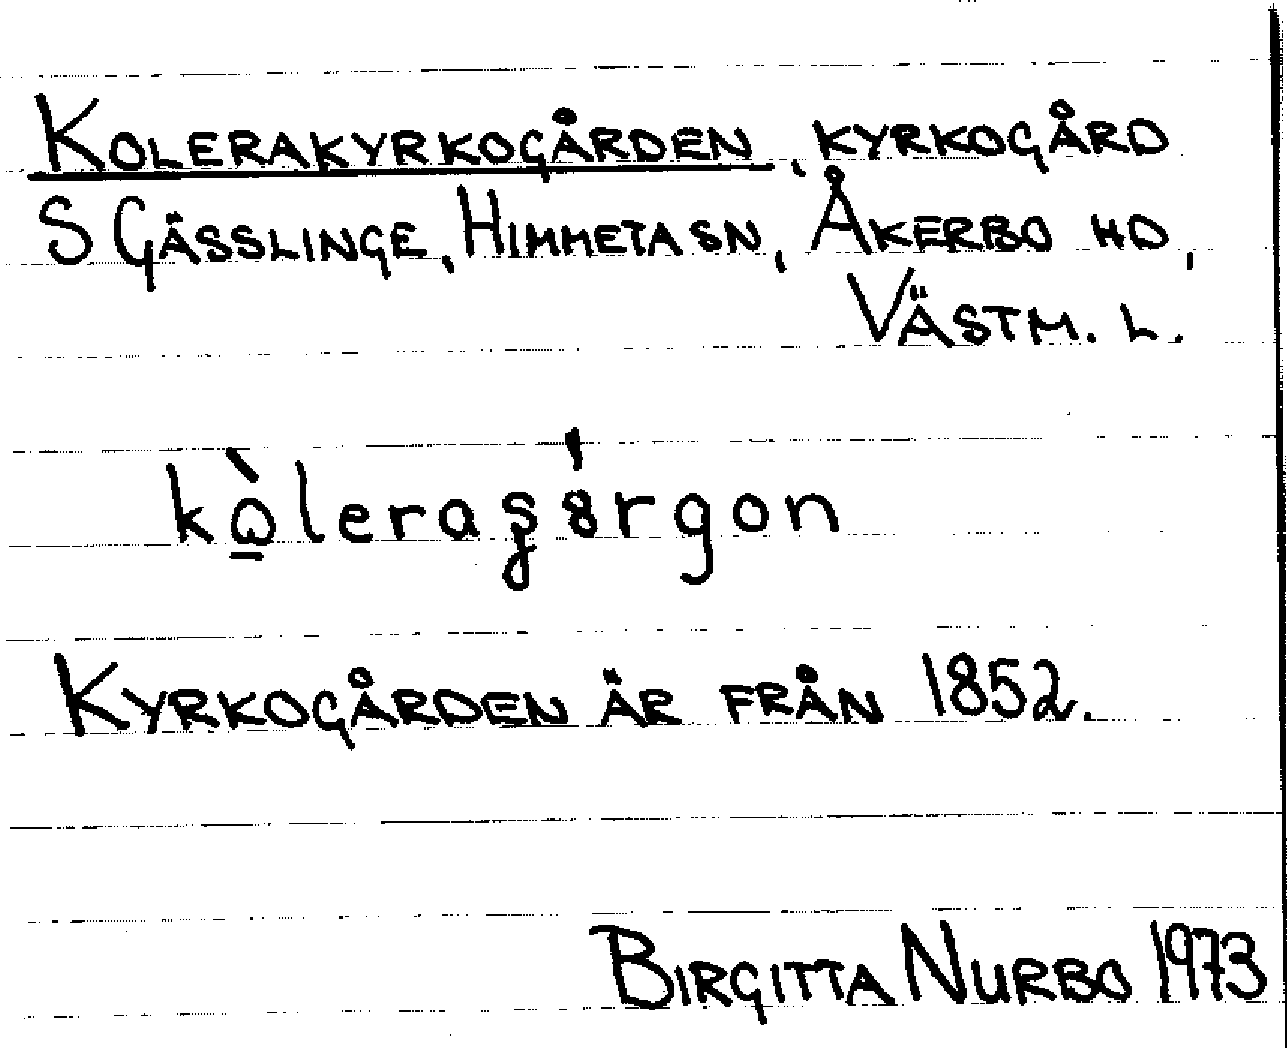 KOLERAKYRKOGÅRDEN, KYRKOGÅRD
S GÄSSLINGE, HIMMETA SN, ÅKERBO HD,
VÄSTM. L.
KYRKOGÅRDEN ÄR FRÅN 1852.
BIRGITTA NURBO 1973